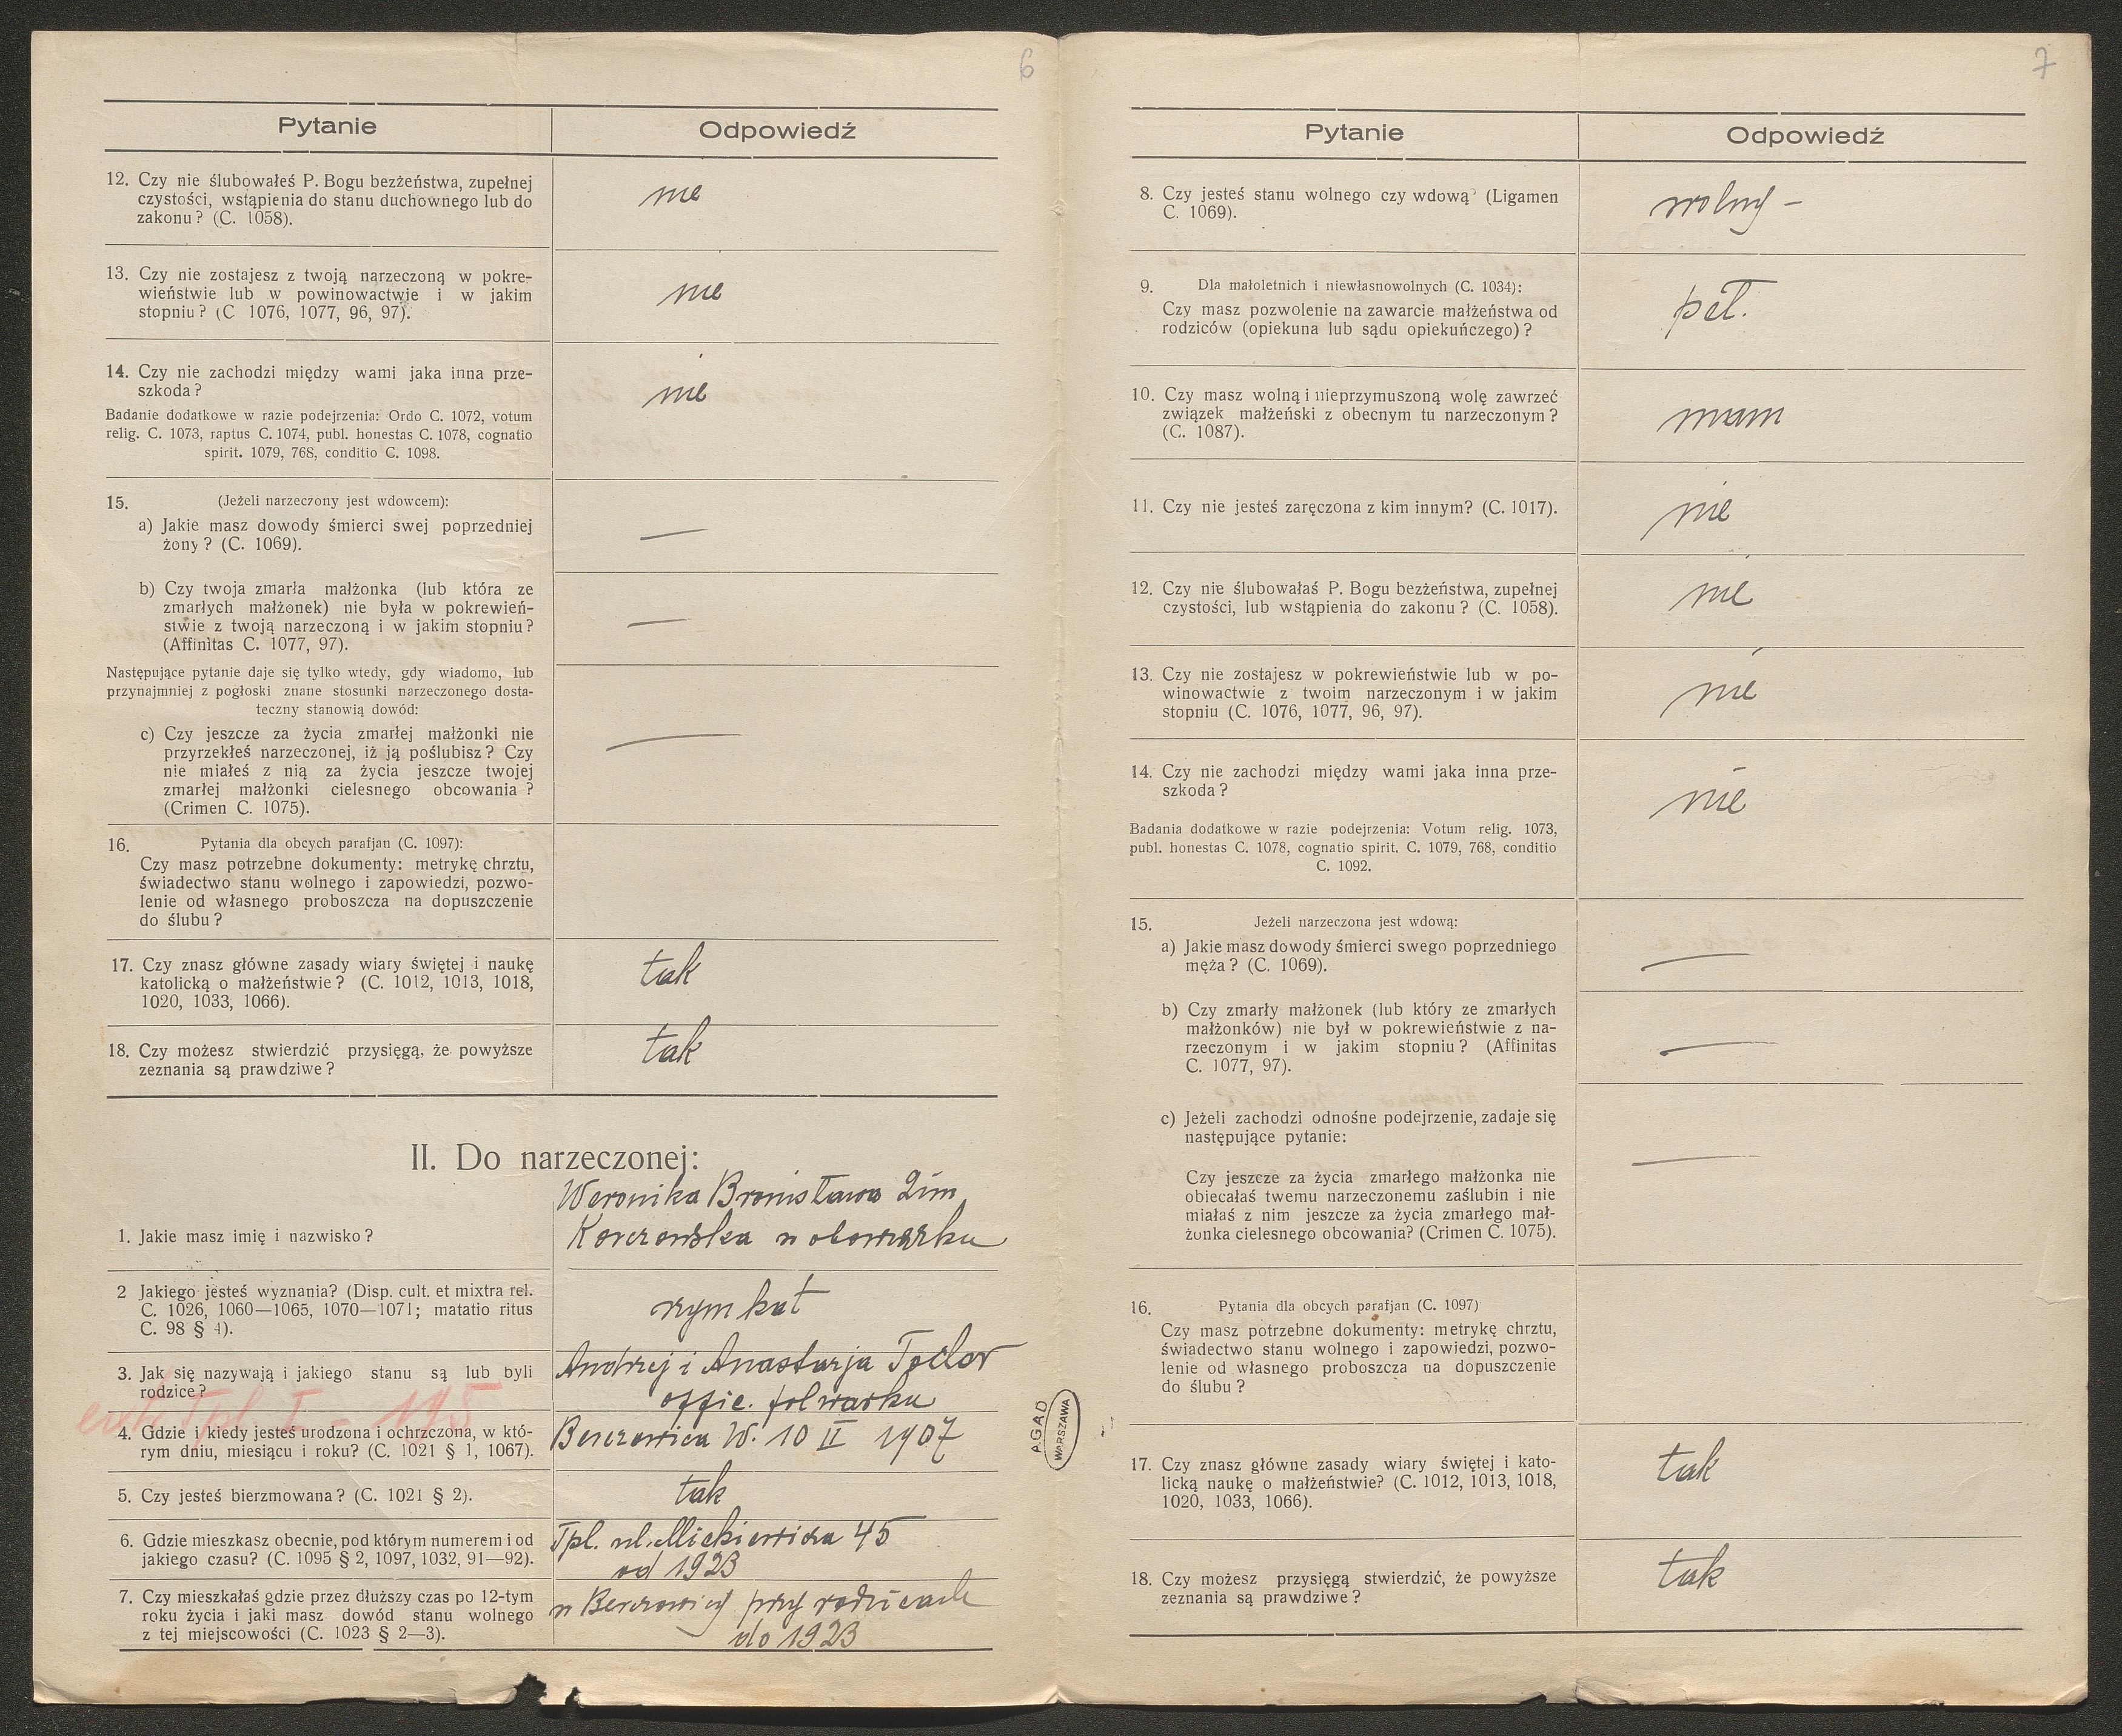 6
Pytanie
Odpowiedź
12. Czy nie ślubowałeś P. Bogu bezżeństwa, zupełnej
czystości, wstąpienia do stanu duchownego lub do
zakonu? (C. 1058).
nie
13. Czy nie zostajesz z twoją narzeczoną w pokre-
wieństwie lub w powinowactwie i w jakim
stopniu? (C 1076, 1077, 96, 97).
nie
14. Czy nie zachodzi między wami jaka inna prze-
szkoda?
nie
Badanie dodatkowe w razie podejrzenia: Ordo C. 1072, votum
relig. C. 1073, raptus C. 1074, publ. honestas C. 1078, cognatio
spirit. 1079, 768, conditio C. 1098.
15. (Jeżeli narzeczony jest wdowcem):
a) Jakie masz dowody śmierci swej poprzedniej
żony? (C. 1069).
—
b) Czy twoja zmarła małżonka (lub która ze
zmarłych małżonek) nie była w pokrewień-
stwie z twoją narzeczoną i w jakim stopniu?
(Affinitas C. 1077, 97).
—
Następujące pytanie daje się tylko wtedy, gdy wiadomo, lub
przynajmniej z pogłoski znane stosunki narzeczonego dosta-
teczny stanowią dowód:
c) Czy jeszcze za życia zmarłej małżonki nie
przyrzekłeś narzeczonej, iż ją poślubisz? Czy
nie miałeś z nią za życia jeszcze twojej
zmarłej małżonki cielesnego obcowania?
(Crimen C. 1075).
—
16. Pytania dla obcych parafjan (C. 1097):
Czy masz potrzebne dokumenty: metrykę chrztu,
świadectwo stanu wolnego i zapowiedzi, pozwo-
lenie od własnego proboszcza na dopuszczenie
do ślubu?
17. Czy znasz główne zasady wiary świętej i naukę
katolicką o małżeństwie? (C. 1012, 1013, 1018,
1020, 1033, 1066).
tak
18. Czy możesz stwierdzić przysięgą, że powyższe
zeznania są prawdziwe?
tak
II. Do narzeczonej:
1. Jakie masz imię i nazwisko?
Weronika Bronisława 2im
2 Jakiego jesteś wyznania? (Disp. cult. et mixtra rel.
C. 1026, 1060—1065, 1070—1071; matatio ritus
C. 98 § 4).
rzym kat
3. Jak się nazywają i jakiego stanu są lub byli
rodzice?
Andrzej i Anastazja Teclor
offic. folwarku
Tpl I - 195
4. Gdzie i kiedy jesteś urodzona i ochrzczona, w któ-
rym dniu, miesiącu i roku? (C. 1021 § 1, 1067).
Berezowica W. 10 II 1907
5. Czy jesteś bierzmowana? (C. 1021 § 2).
tak
6. Gdzie mieszkasz obecnie, pod którym numerem i od
jakiego czasu? (C. 1095 § 2, 1097, 1032, 91—92).
Tpl. ul. Mickiewicza 45
od 1923
7. Czy mieszkałaś gdzie przez dłuższy czas po 12-tym
roku życia i jaki masz dowód stanu wolnego
z tej miejscowości (C. 1023 § 2—3).
w Berezowicy przy rodzicach
do 1923
AGAD
WARSZAWA
7
Pytanie
Odpowiedź
8. Czy jesteś stanu wolnego czy wdową? (Ligamen
C. 1069).
wolny —
9. Dla małoletnich i niewłasnowolnych (C. 1034):
Czy masz pozwolenie na zawarcie małżeństwa od
rodziców (opiekuna lub sądu opiekuńczego)?
peł.
10. Czy masz wolną i nieprzymuszoną wolę zawrzeć
związek małżeński z obecnym tu narzeczonym?
(C. 1087).
mam
11. Czy nie jesteś zaręczona z kim innym? (C. 1017).
nie
12. Czy nie ślubowałaś P. Bogu bezżeństwa, zupełnej
czystości, lub wstąpienia do zakonu? (C. 1058).
nie
13. Czy nie zostajesz w pokrewieństwie lub w po-
winowactwie z twoim narzeczonym i w jakim
stopniu (C. 1076, 1077, 96, 97).
nie
14. Czy nie zachodzi między wami jaka inna prze-
szkoda?
nie
Badania dodatkowe w razie podejrzenia: Votum relig. 1073,
publ. honestas C. 1078, cognatio spirit. C. 1079, 768, conditio
C. 1092.
15. Jeżeli narzeczona jest wdową:
a) Jakie masz dowody śmierci swego poprzedniego
męża? (C. 1069).
—
b) Czy zmarły małżonek (lub który ze zmarłych
małżonków) nie był w pokrewieństwie z na-
rzeczonym i w jakim stopniu? (Affinitas
C. 1077, 97).
—
c) Jeżeli zachodzi odnośne podejrzenie, zadaje się
następujące pytanie:
—
Czy jeszcze za życia zmarłego małżonka nie
obiecałaś twemu narzeczonemu zaślubin i nie
miałaś z nim jeszcze za życia zmarłego mał-
żonka cielesnego obcowania? (Crimen C. 1075).
16. Pytania dla obcych parafjan (C. 1097)
Czy masz potrzebne dokumenty: metrykę chrztu,
świadectwo stanu wolnego i zapowiedzi, pozwo-
lenie od własnego proboszcza na dopuszczenie
do ślubu?
17. Czy znasz główne zasady wiary świętej i kato-
licką naukę o małżeństwie? (C. 1012, 1013, 1018,
1020, 1033, 1066).
tak
18. Czy możesz przysięgą stwierdzić, że powyższe
zeznania są prawdziwe?
tak